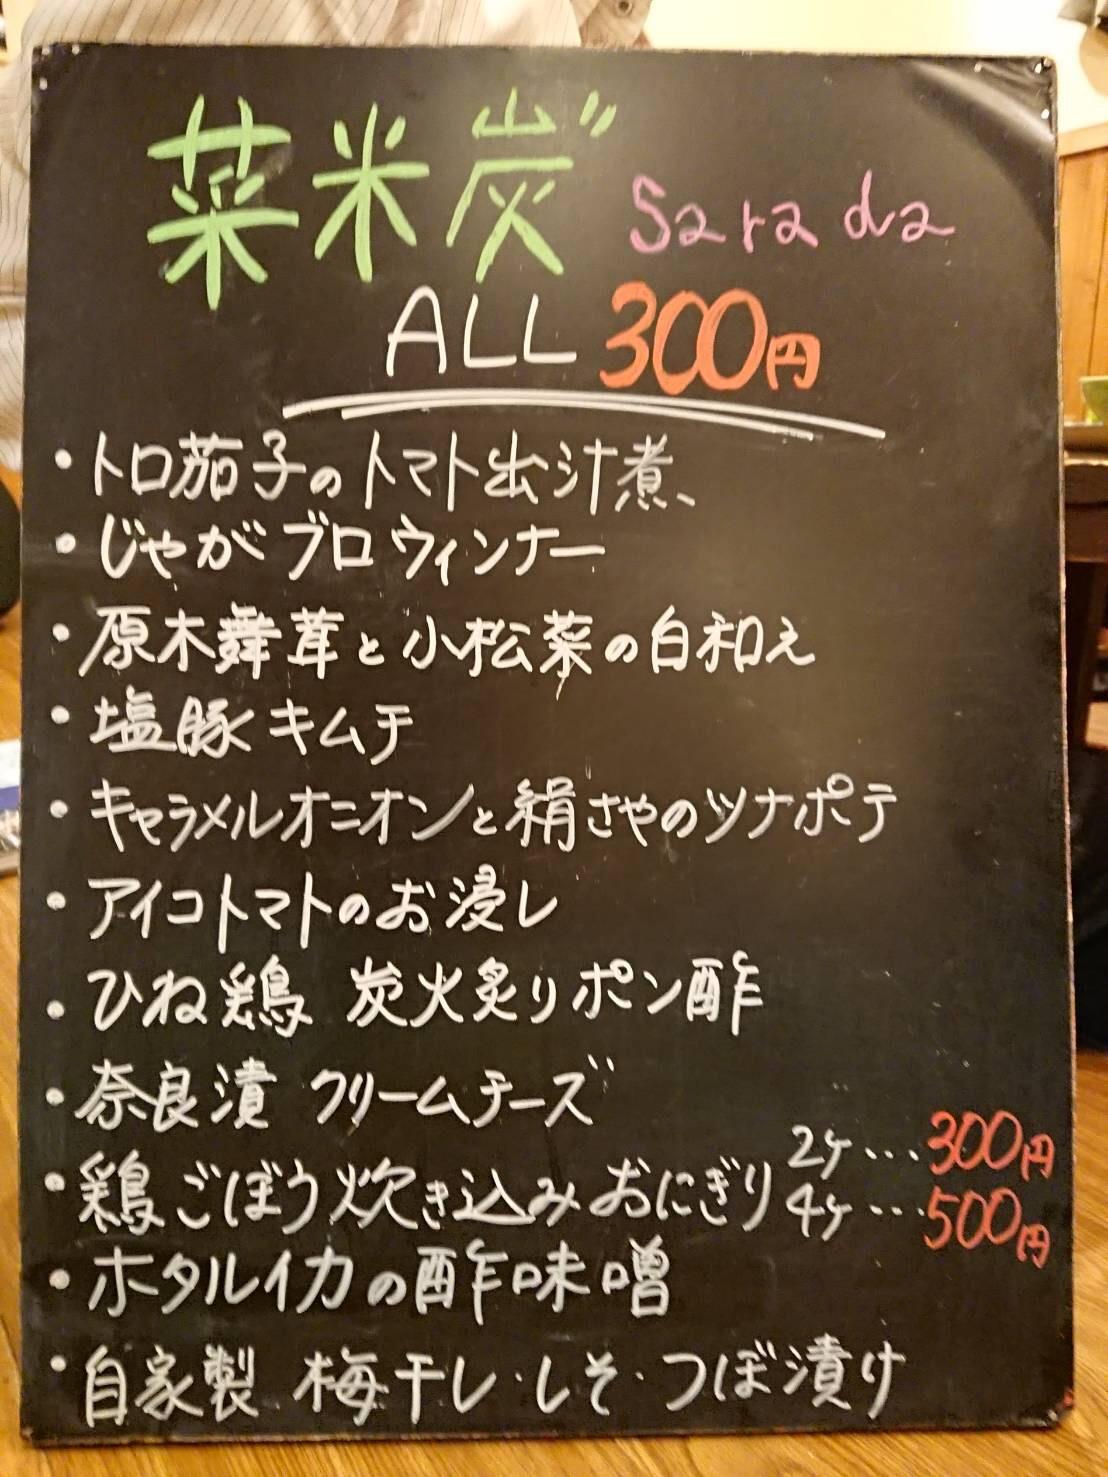 菜米炭゛ Sarada
ALL 300円
・トロ茄子のトマト出汁煮、
・じゃがブロウィンナー
・原木舞茸と小松菜の白和え
・塩豚キムチ
・キャラメルオニオンと絹さやのツナポテ
・アイコトマトのお浸し
・ひね鶏 炭火炙りポン酢
・奈良漬 クリームチーズ
・鶏ごぼう炊き込みおにぎり 2ヶ…300円
4ヶ…500円
・ホタルイカの酢味噌
・自家製 梅干し・しそ・つぼ漬け